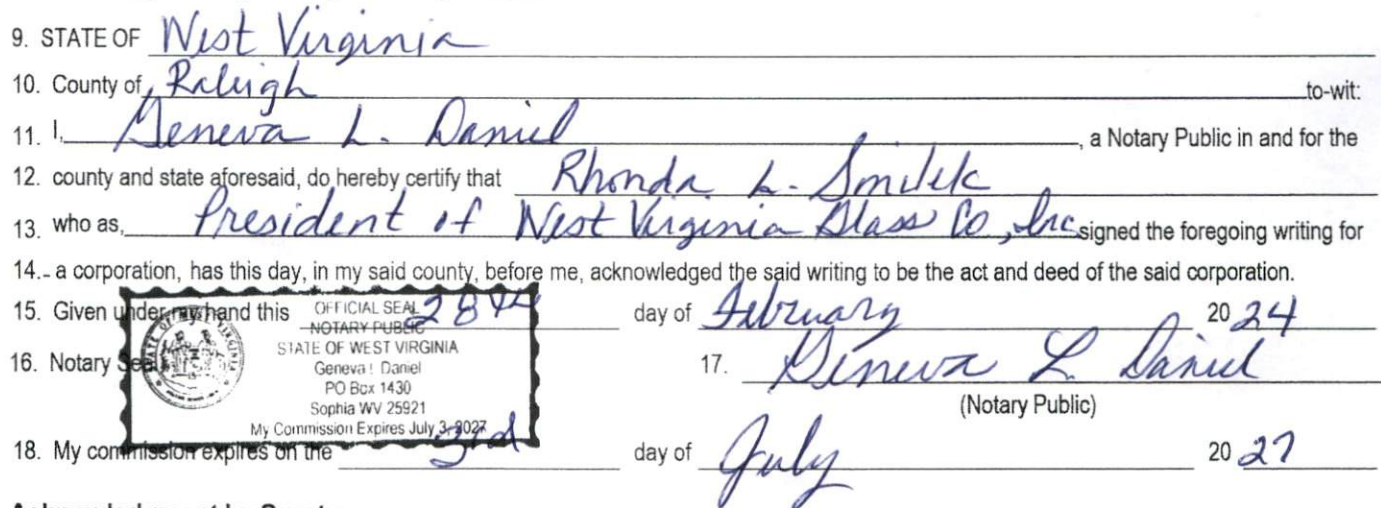 9. STATE OF West Virginia
10. County of Raleigh to-wit:
11. I, Geneva L. Daniel, a Notary Public in and for the
12. county and state aforesaid, do hereby certify that Rhonda L. Smilek
13. who as, President of West Virginia Glass Co, Inc signed the foregoing writing for
14. a corporation, has this day, in my said county, before me, acknowledged the said writing to be the act and deed of the said corporation.
15. Given under my hand this 28th day of February 2024
OFFICIAL SEAL
NOTARY PUBLIC
STATE OF WEST VIRGINIA
Geneva L Daniel
PO Box 1430
Sophia WV 25921
My Commission Expires July 3, 2027
16. Notary Seal 17. Geneva L Daniel
(Notary Public)
18. My commission expires on the 3rd day of July 2027